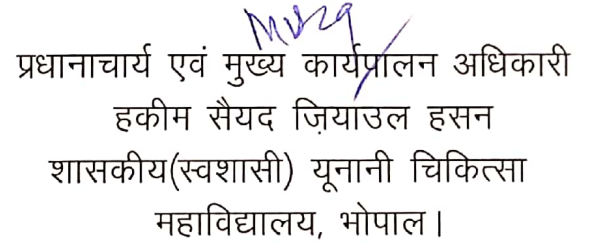 प्रधानाचार्य एवं मुख्य कार्यपालन अधिकारी
हकीम सैयद ज़ियाउल हसन
शासकीय(स्वशासी) यूनानी चिकित्सा
महाविद्यालय, भोपाल।